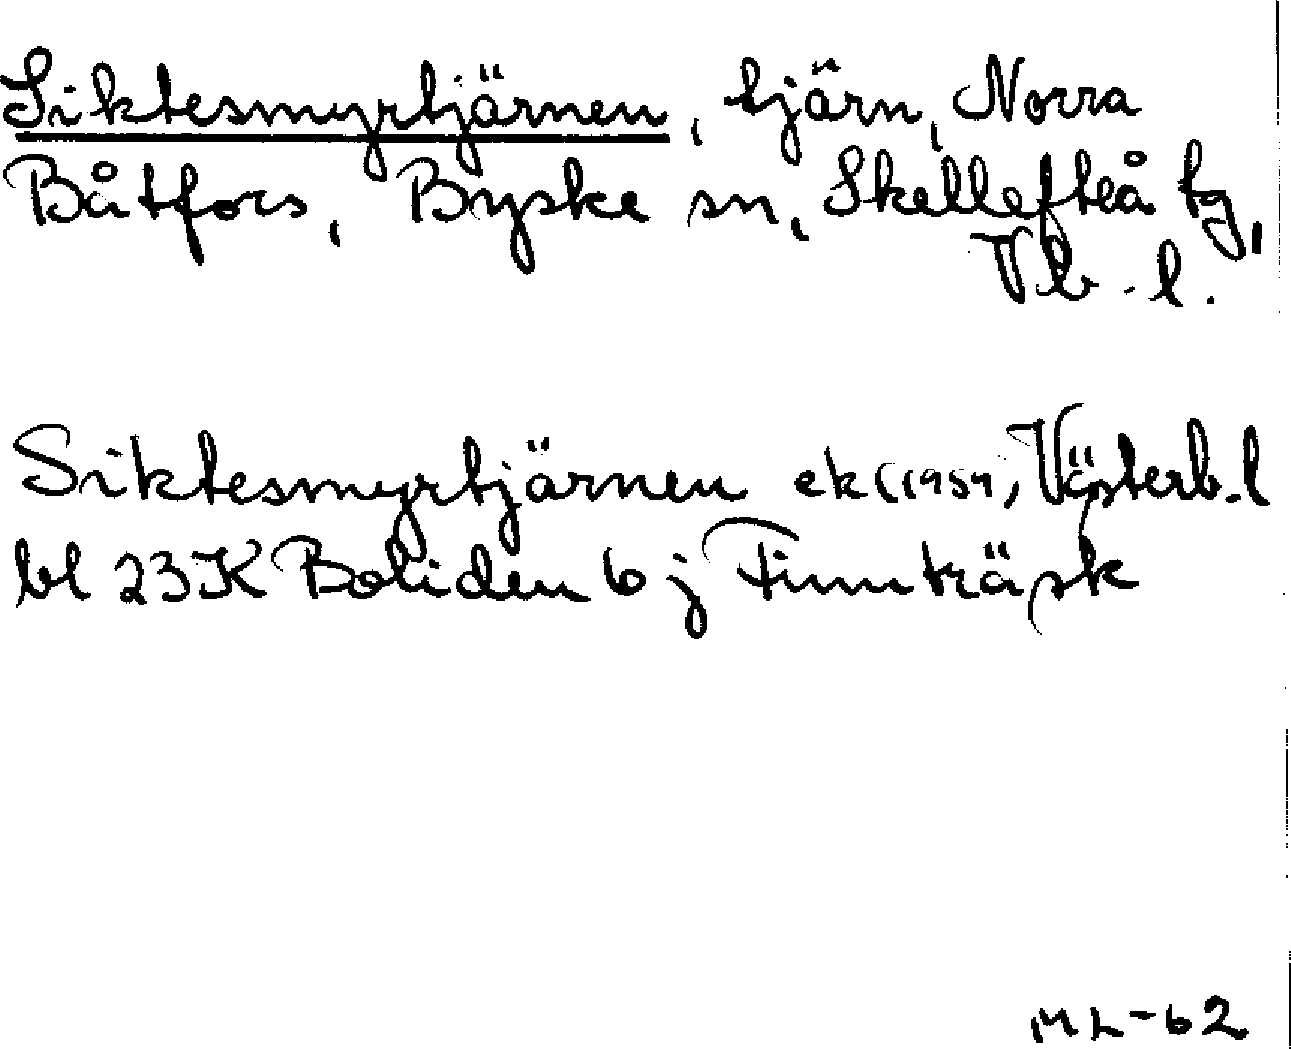 Siktesmyrtjärnen, tjärn, Norra
Båtfors, Byske sn, Skellefteå tg,
Vb. l.
Siktesmyrtjärnen ek (1959, Västerb. l
bl 23K Boliden 6 j Finnträsk
ML-62